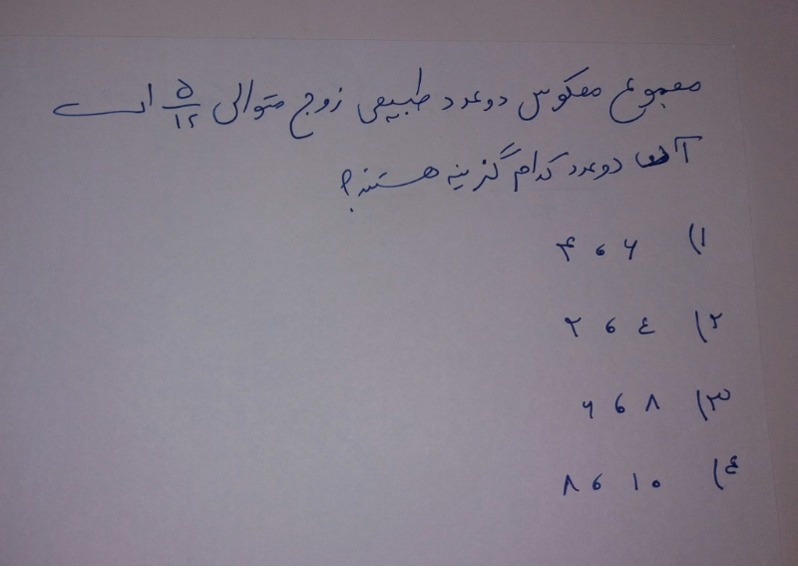 مجموع معکوس دو عدد طبیعی زوج متوالی ۵/۱۲ است
آن دو عدد کدام گزینه هستند؟
۱) ۶ ، ۴
۲) ٤ ، ۲
۳) ۸ ، ۶
٤) ۱۰ ، ۸